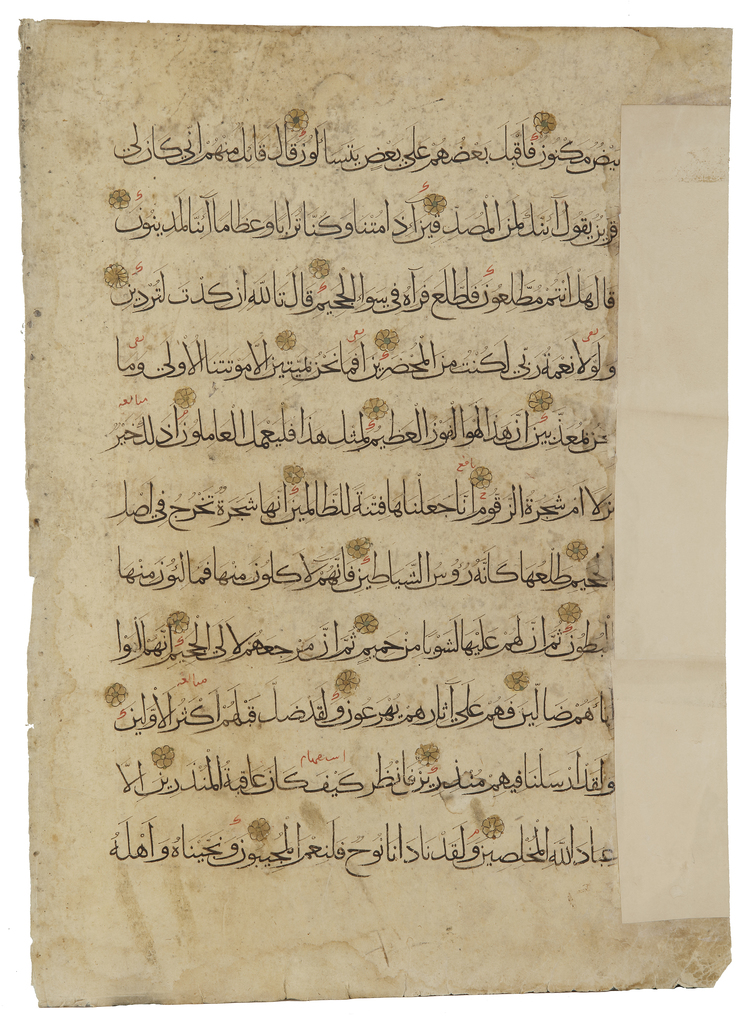 بيض مكنون فاقبل بعضهم علي بعض يتسالون قال قائل منهم اني كان لي
قرين يقول ائنك لمن المصدقين آاذا متنا وكنا ترابا وعظاما آئنا لمدينون
قال هل انتم مطلعون فاطلع فرآه في سوآء الجحيم قال تالله ان كدت لتردين
ولولا نعمة ربي لكنت من المحضرين افما نحن بميتين الا موتتنا الاولي وما
نحن بمعذبين ان هذا لهو الفوز العظيم لمثل هذا فليعمل العاملون اذلك خير
نزلا ام شجرة الزقوم انا جعلناها فتنة للظالمين انها شجرة تخرج في اصل
الجحيم طلعها كانه رؤس الشياطين فانهم لاكلون منها فمالئون منها
البطون ثم ان لهم عليها لشوبا من حميم ثم ان مرجعهم لالي الجحيم انهم الفوا
اباءهم ضالين فهم علي آثارهم يهرعون ولقد ضل قبلهم اكثر الاولين
ولقد ارسلنا فيهم منذرين فانظر كيف كان عاقبة المنذرين الا
عباد الله المخلصين ولقد نادانا نوح فلنعم المجيبون ونجيناه واهله